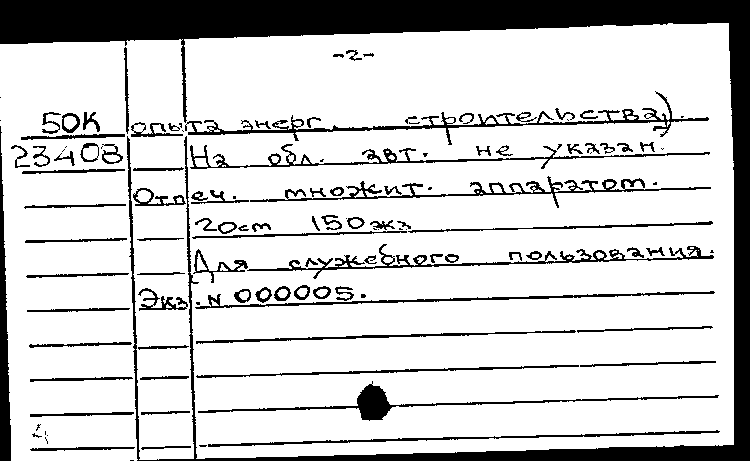 -2-
50К опыта энерг. строительства).
23408 На обл. авт. не указан.
Отпеч. множит. аппаратом.
20cm 150экз
Для служебного пользования.
Экз. N 000005.
4